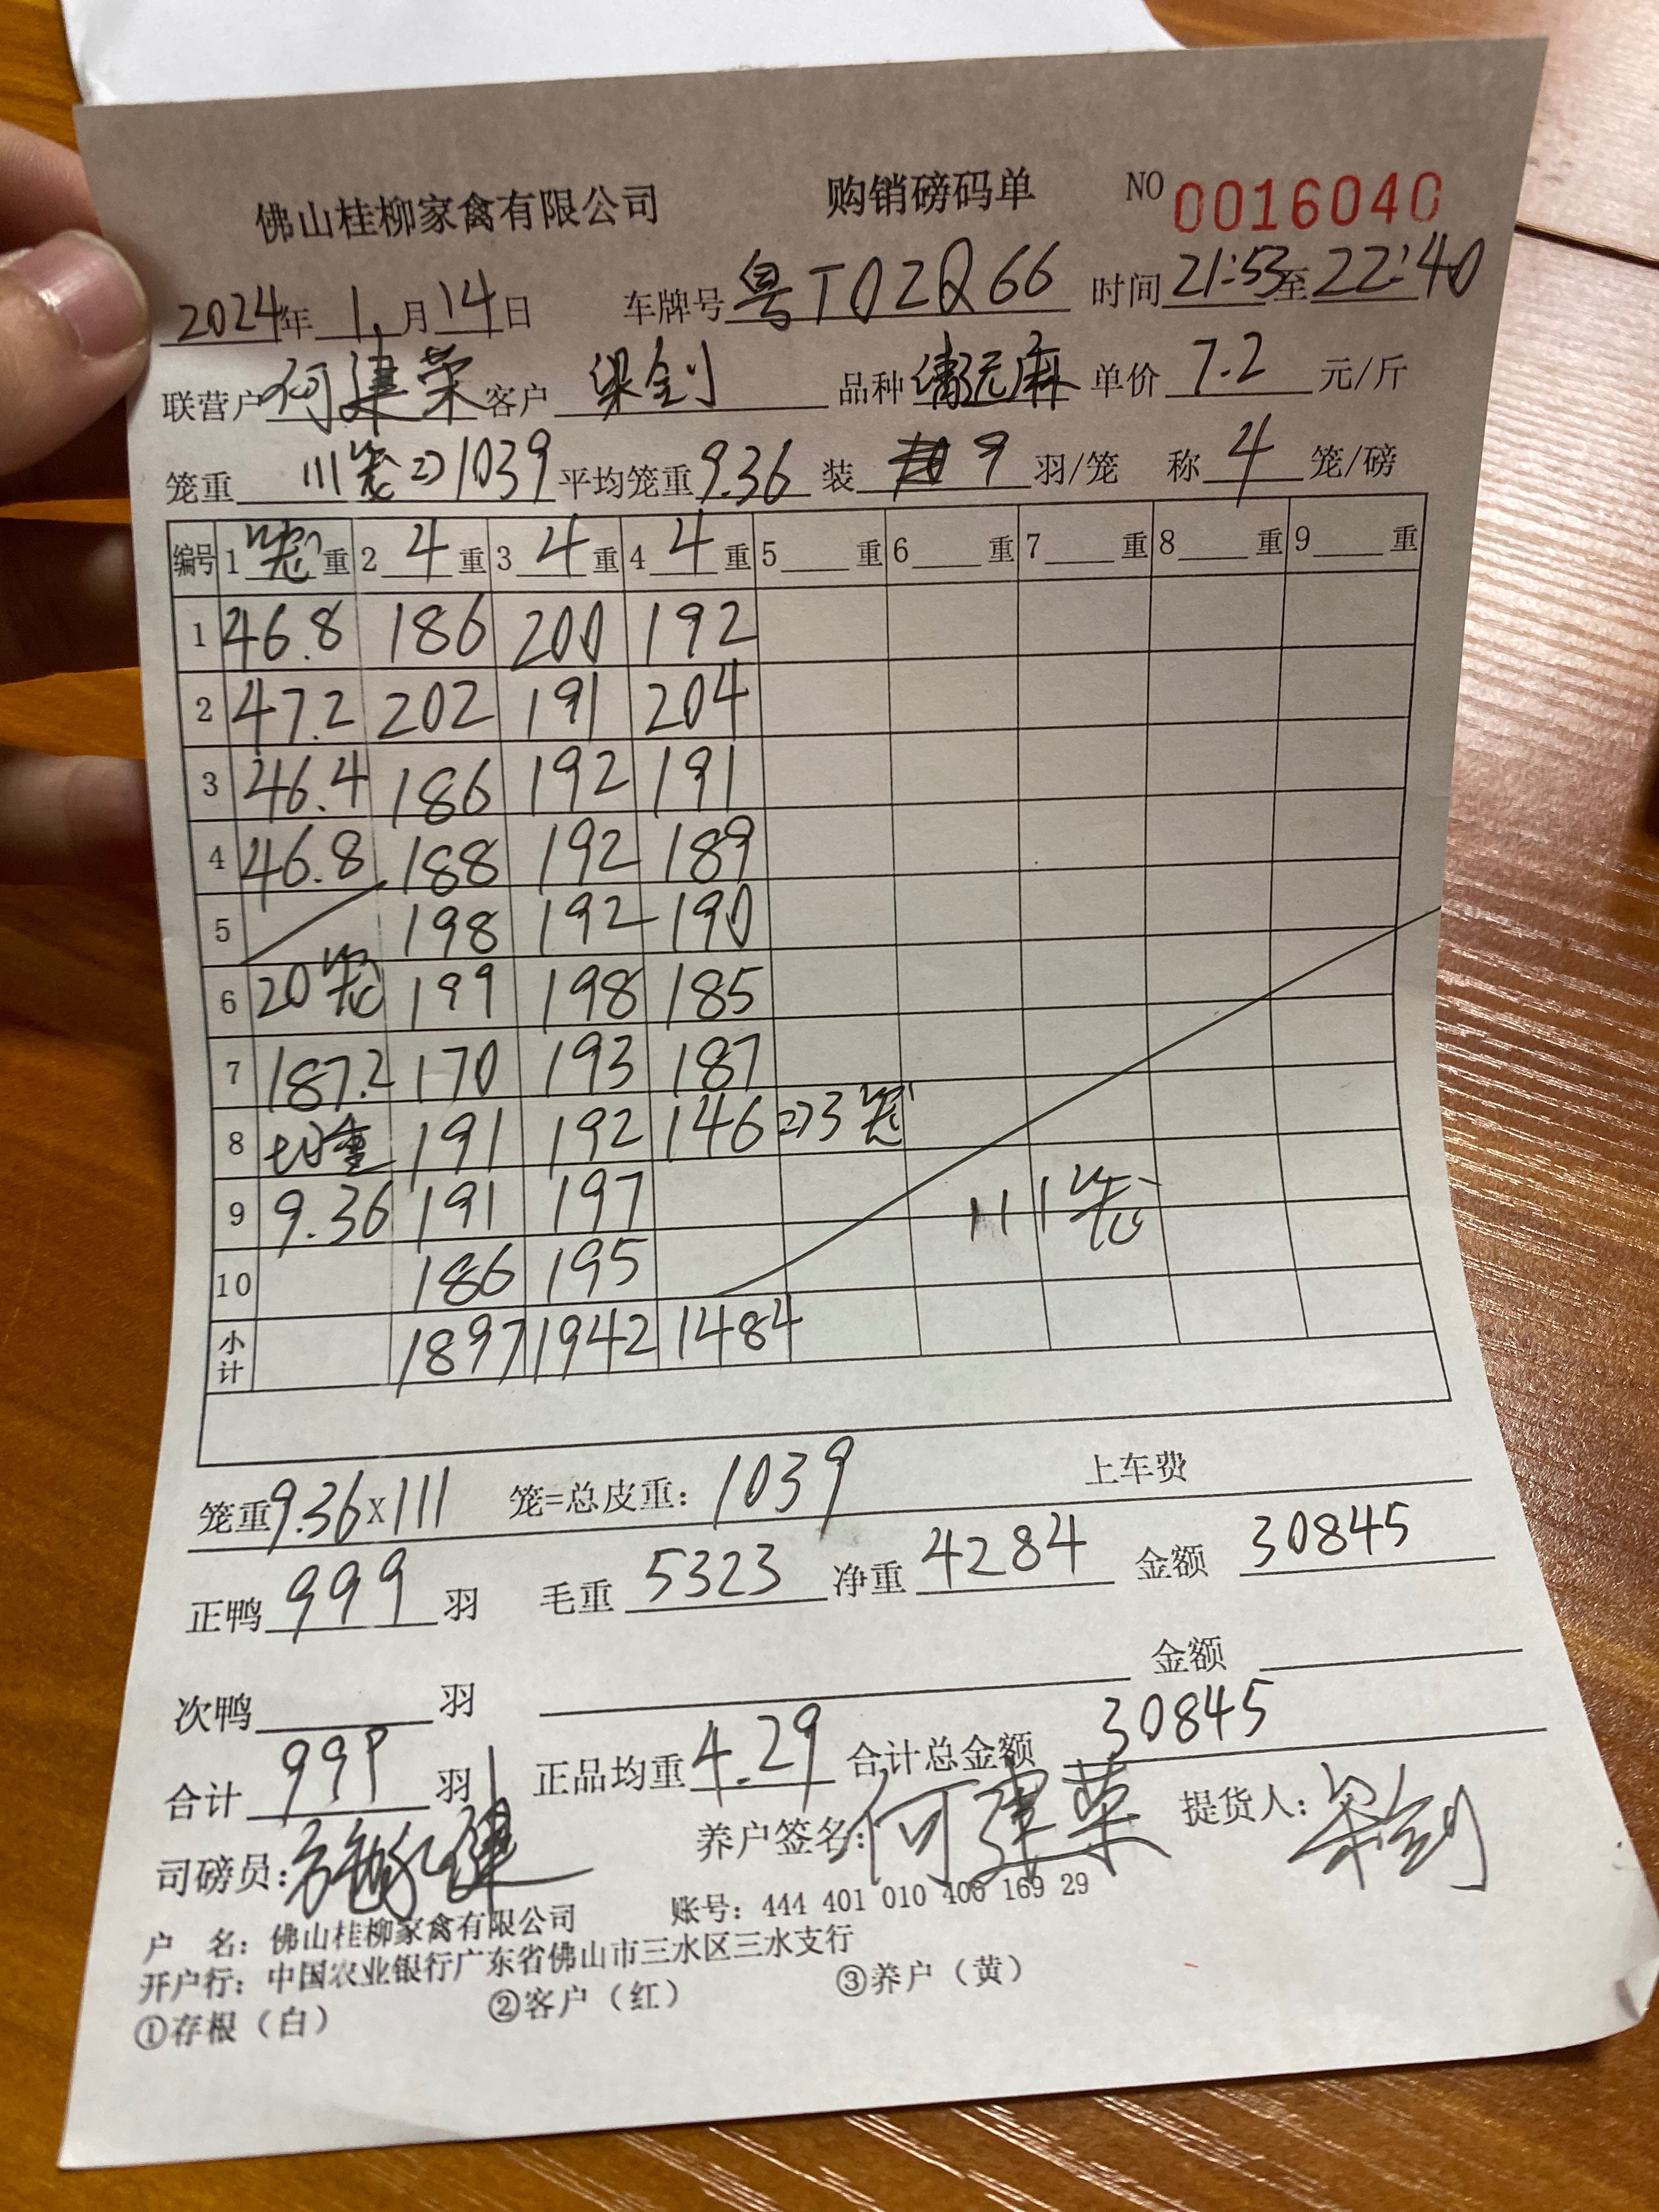 佛山桂柳家禽有限公司 购销磅码单 NO 0016040
2024年 1 月 14 日 车牌号 粤T02Q66 时间 21:53 至 22:40
联营户 何建荣 客户 梁剑 品种 清远麻 单价 7.2 元/斤
笼重 111笼=>1039 平均笼重 9.36 装 9 羽/笼 称 4 笼/磅
编号 1 笼 重 2 4 重 3 4 重 4 4 重 5 重 6 重 7 重 8 重 9 重
1 46.8 186 200 192
2 47.2 202 191 204
3 46.4 186 192 191
4 46.8 188 192 189
5 198 192 190
6 20笼 199 198 185
7 187.2 170 193 187
8 均重 191 192 146 =>3笼
9 9.36 191 197 111笼
10 186 195
小计 1897 1942 1484
笼重 9.36 x 111 笼=总皮重: 1039 上车费
正鸭 999 羽 毛重 5323 净重 4284 金额 30845
次鸭 羽 金额
合计 999 羽 正品均重 4.29 合计总金额 30845
司磅员: 养户签名: 何建荣 提货人: 梁剑
户 名: 佛山桂柳家禽有限公司 账号: 444 401 010 400 169 29
开户行: 中国农业银行广东省佛山市三水区三水支行
①存根（白） ②客户（红） ③养户（黄）